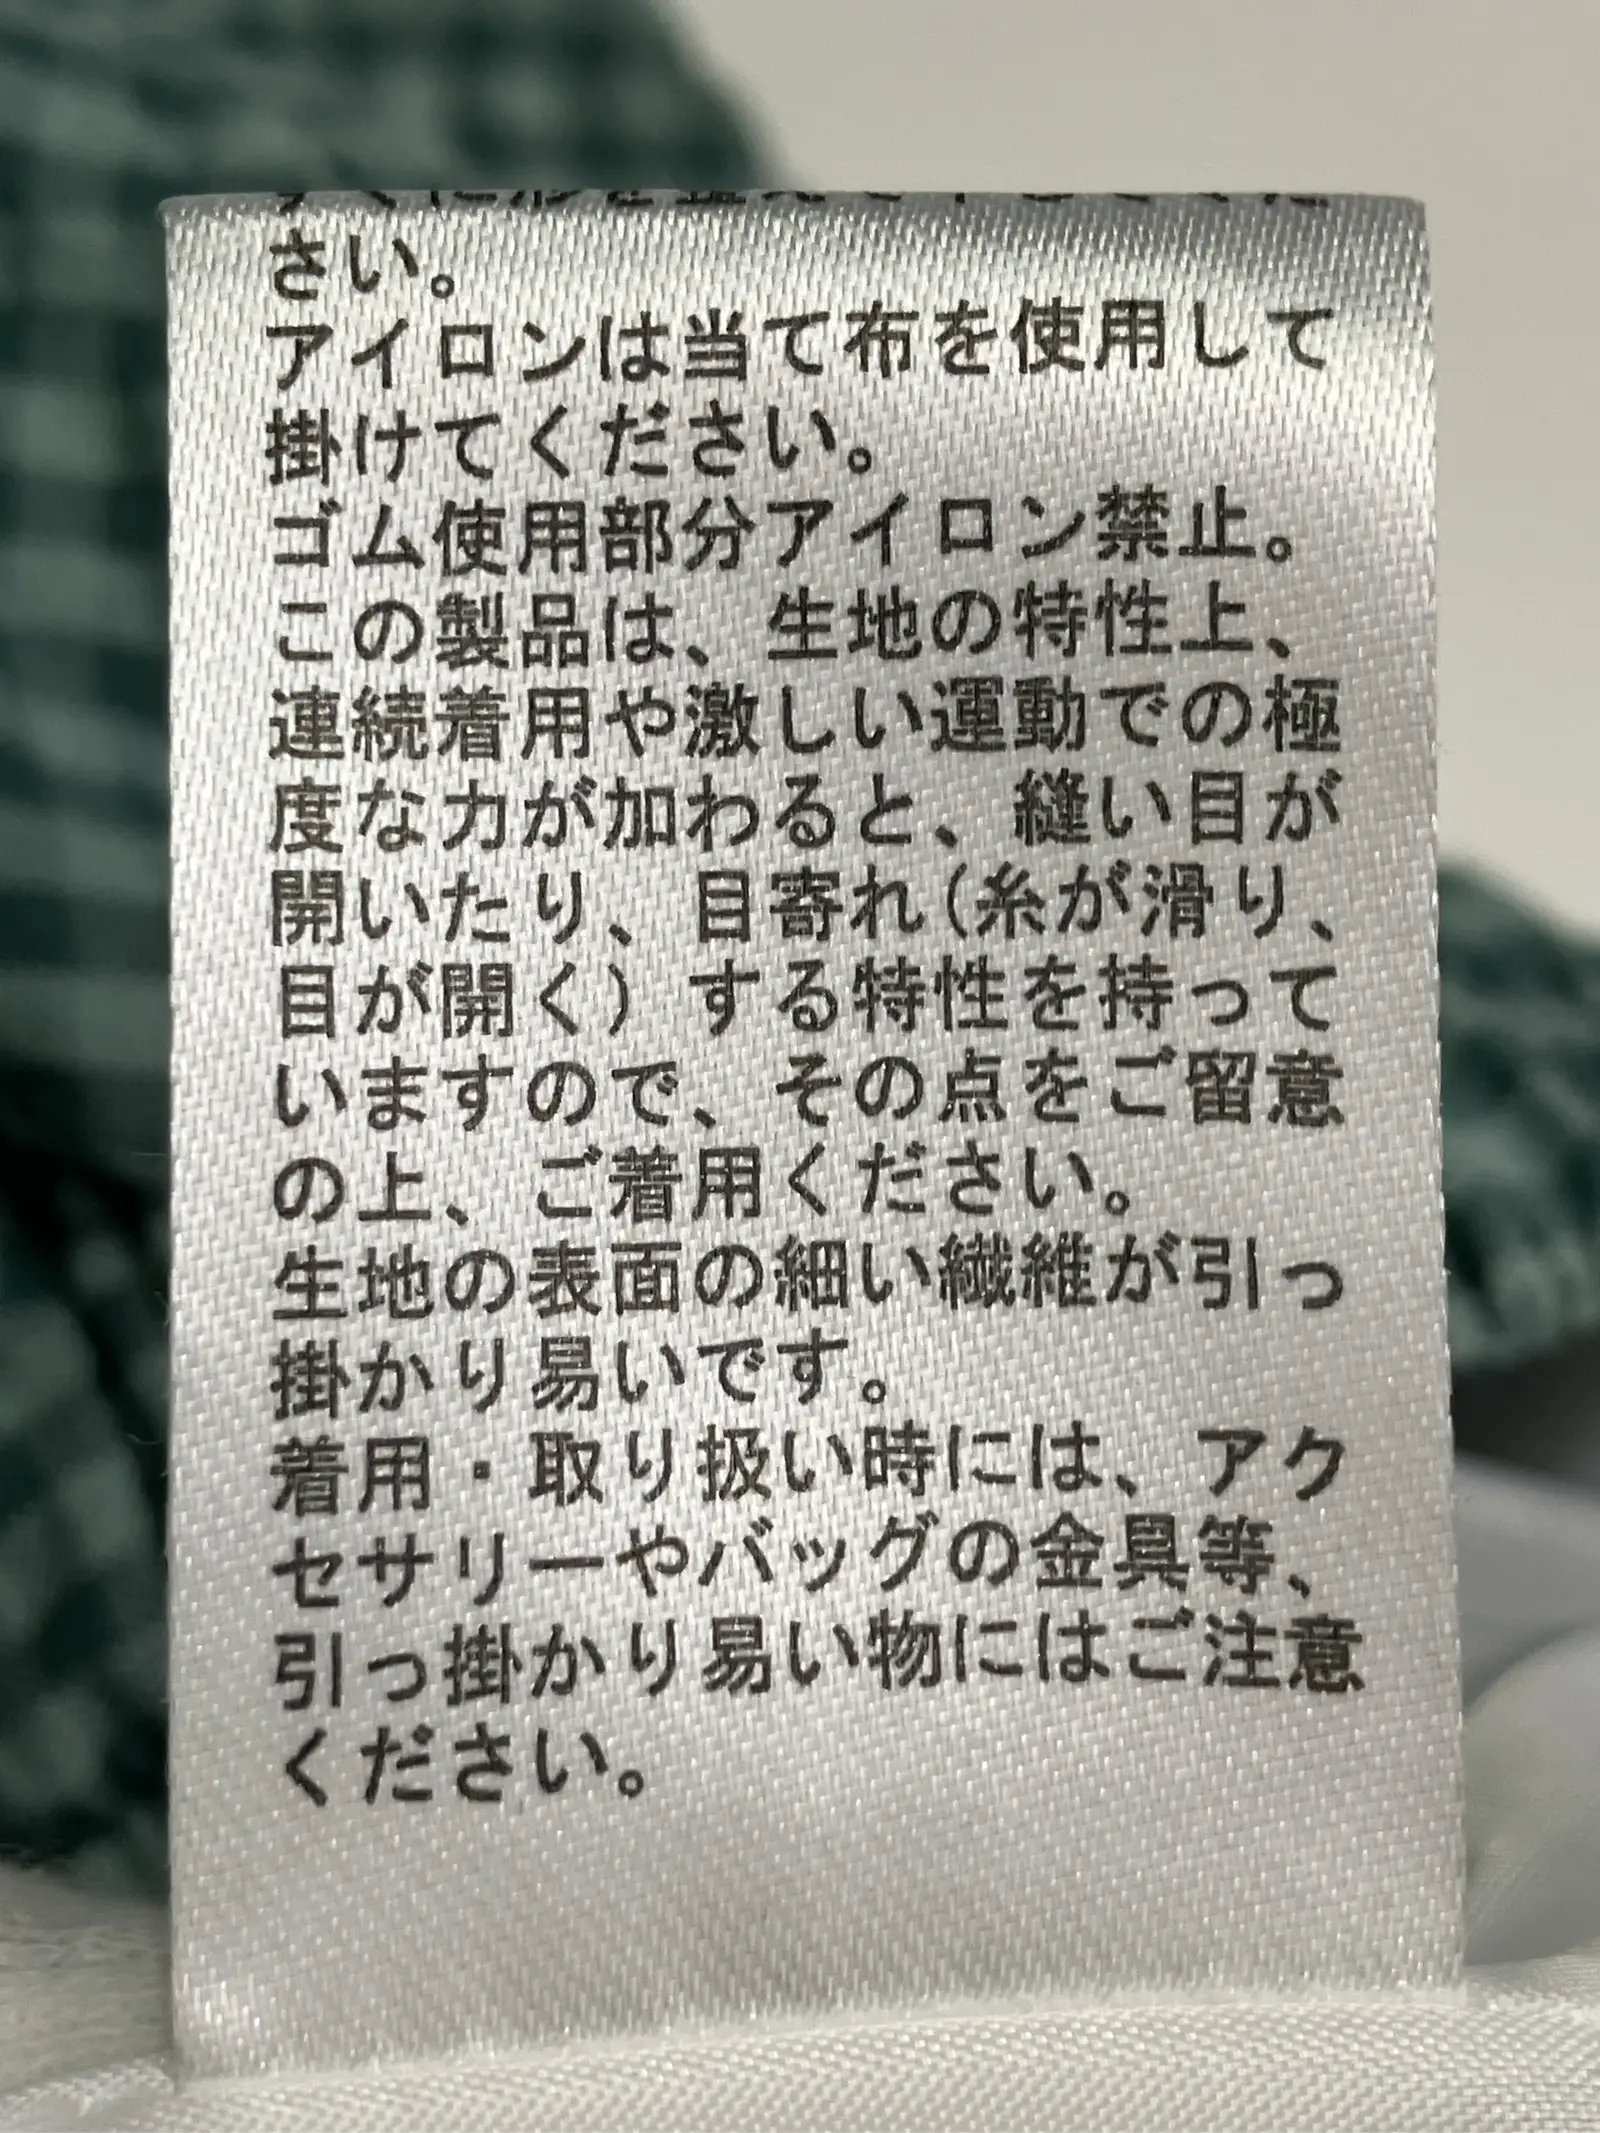 さい。
アイロンは当て布を使用して
掛けてください。
ゴム使用部分アイロン禁止。
この製品は、生地の特性上、
連続着用や激しい運動での極
度な力が加わると、縫い目が
開いたり、目寄れ(糸が滑り、
目が開く)する特性を持って
いますので、その点をご留意
の上、ご着用ください。
生地の表面の細い繊維が引っ
掛かり易いです。
着用・取り扱い時には、アク
セサリーやバッグの金具等、
引っ掛かり易い物にはご注意
ください。